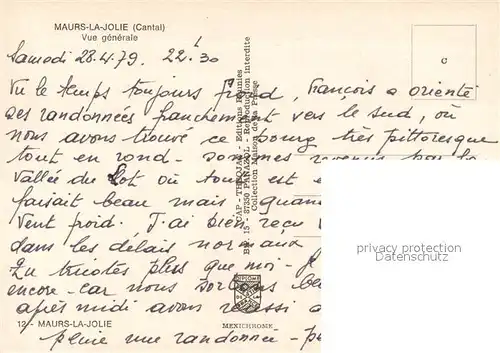 MAURS-LA-JOLIE (Cantal)
Vue générale
Samedi 28.4.79. 22 h 30
Vu le temps toujours froid, François a orienté
ses randonnées franchement vers le sud, où
nous avons trouvé ce bourg très pittoresque
tout en rond - sommes revenus par la
Vallée du Lot où tout est
faisait beau mais quan
vent froid. J'ai bien reçu
dans les délais normaux
Tu tricotes plus que moi - J
encore - car nous sortons
après midi avons réussi
12 - MAURS-LA-JOLIE
pleine une randonnée -
CAP - THEOJAC - Editions Réunies
BP 15 - 87350 PANAZOL - Reproduction interdite
Collection Maison de la Presse
MEXICHROME
privacy protection
Datenschutz